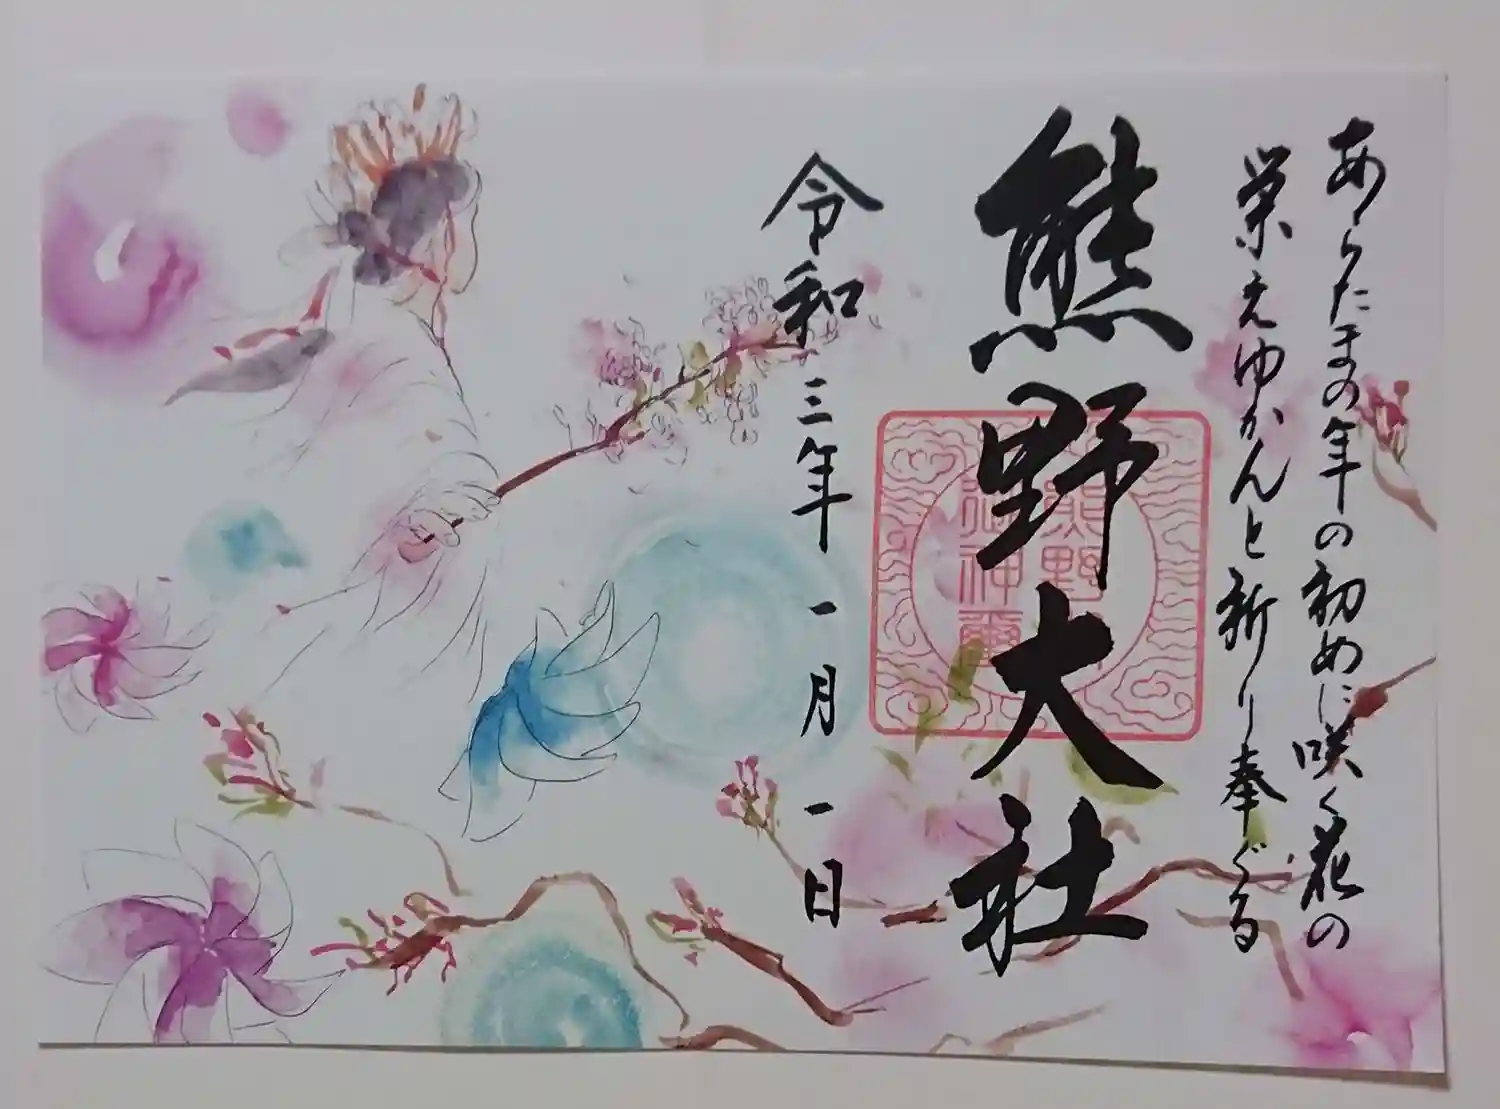 あらたまの年の初めに咲く花の
栄えゆかんと祈り奉ぐる
熊野大社
熊野
神璽
令和三年一月一日